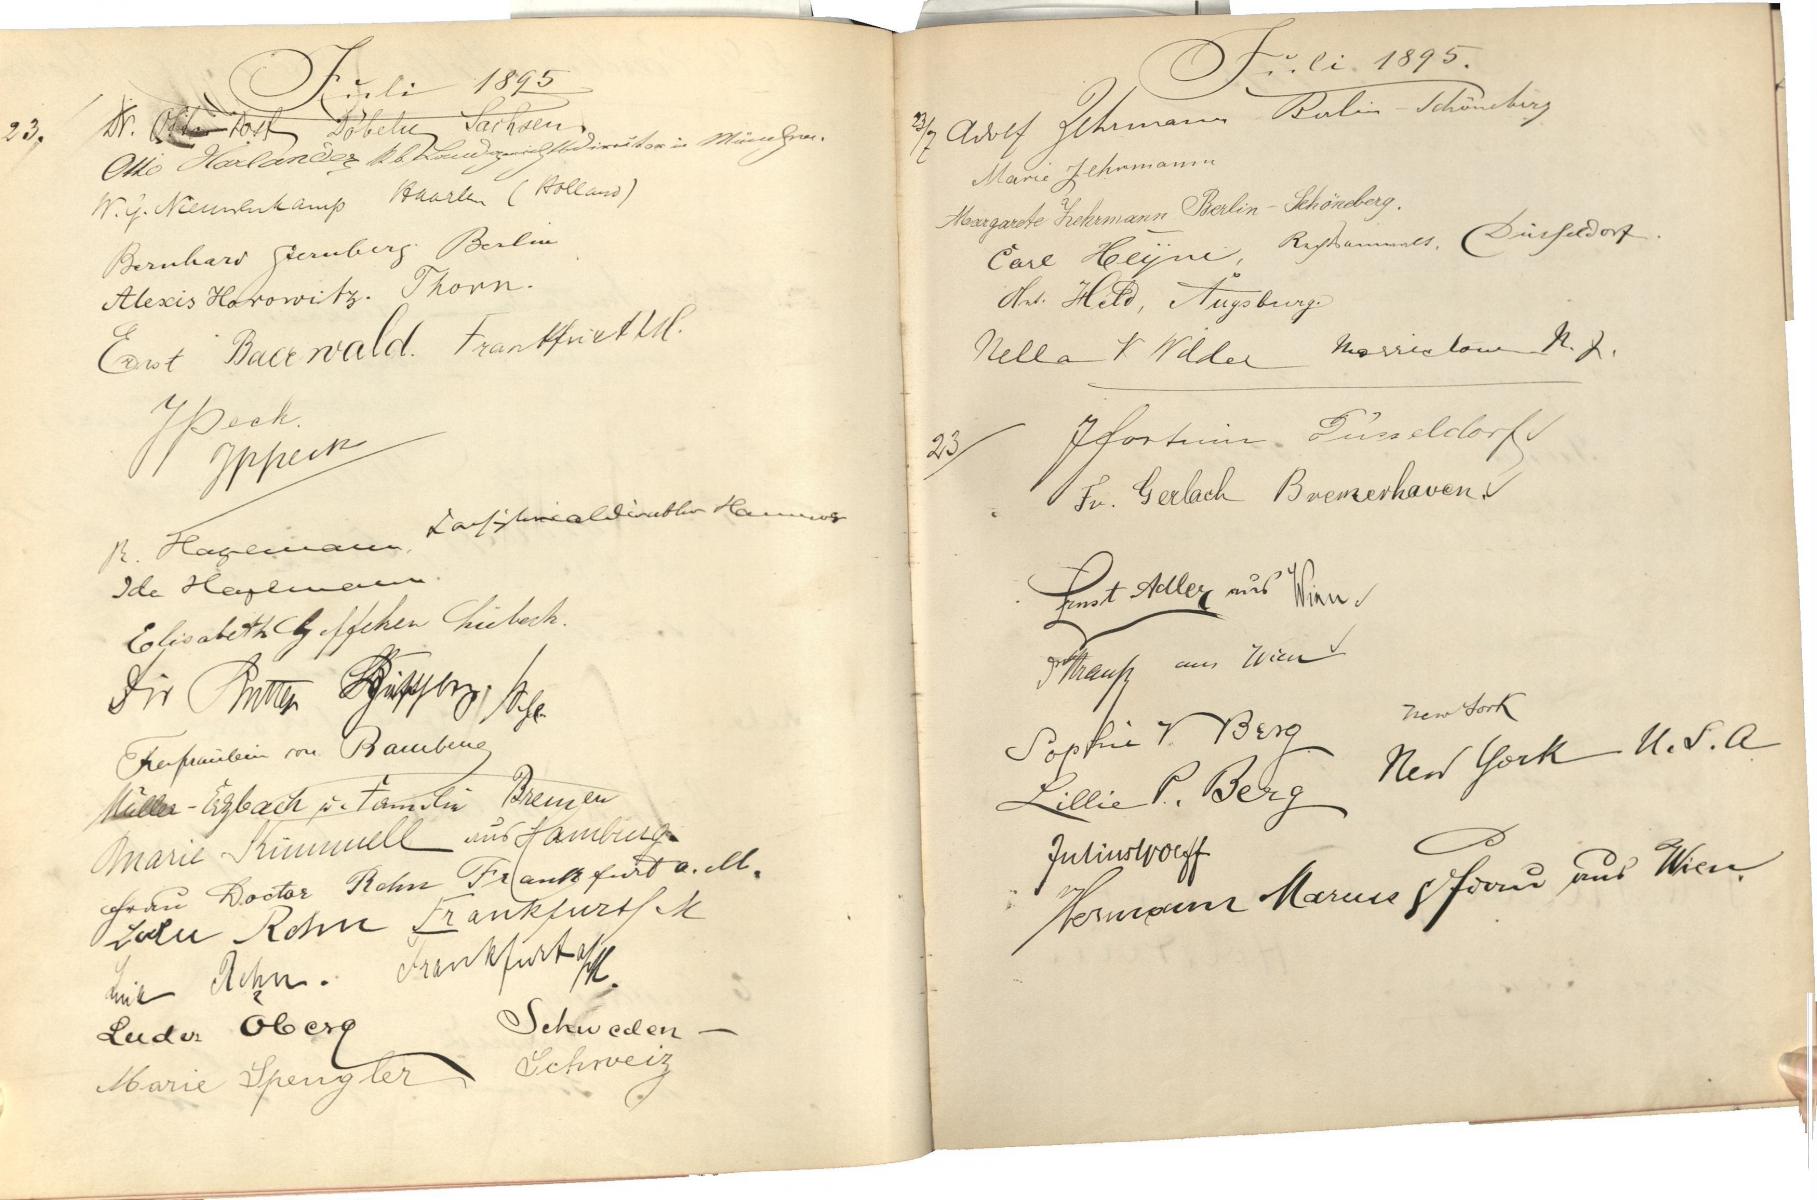 Juli 1895
23.
Dr. Otto Döbeln Sachsen.
Otto Harlander k. b. Landgerichtsdirektor in München.
W. G. Nieuwenkamp Haarlem (Holland)
Bernhard Sternberg Berlin
Alexis Horowitz. Thorn.
Ernst Baerwald. Frankfurt a/M.
JPPeck.
JPPeck
R. Hagemann, Hannover
Ida Hagemann.
Elisabeth Geffcken Lübeck.
Dir
von Bamberg
Müller-Erzbach u. Familie Bremen
Marie Kümmell aus Hamburg.
Frau Doctor Rehn Frankfurt a. M.
Rehn Frankfurt/M
Rehn. Frankfurt a/M.
Öberg Schweden —
Marie Spengler Schweiz
Juli 1895.
23/7 Adolf Zehrmann Berlin-Schöneberg
Marie Zehrmann
Margarete Zehrmann Berlin-Schöneberg.
Carl Heyne, Rechtsanwalt, Düsseldorf.
Ant. Held, Augsburg.
Nella V Wilder Morristown N. J.
23/
Düsseldorf
Fr. Gerlach Bremerhaven.
Ernst Adler aus Wien
Strauß aus Wien
Sophie V. Berg New York
Lillie P. Berg New York U.S.A
Julius Wolff
Hermann Marcus & Frau aus Wien.